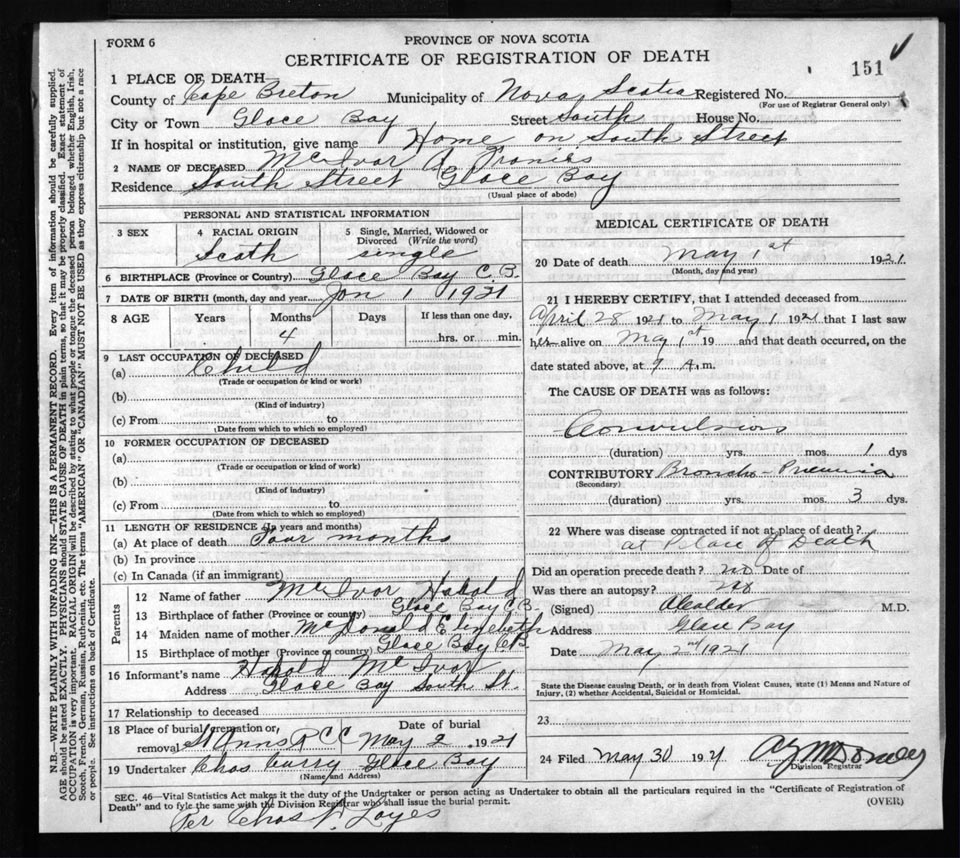 FORM 6
PROVINCE OF NOVA SCOTIA
CERTIFICATE OF REGISTRATION OF DEATH
151
1 PLACE OF DEATH
County of Cape Breton Municipality of Nova Scotia Registered No.
(For use of Registrar General only)
City or Town Glace Bay Street South House No.
If in hospital or institution, give name Home on South Street
2 NAME OF DECEASED McIvor
Residence South Street Glace Bay
(Usual place of abode)
PERSONAL AND STATISTICAL INFORMATION
3 SEX 4 RACIAL ORIGIN 5 Single, Married, Widowed or
Divorced (Write the word)
Scoth single
6 BIRTHPLACE (Province or Country) Glace Bay C.B.
7 DATE OF BIRTH (month, day and year Jan 1 1921
8 AGE Years Months Days If less than one day,
4 hrs. or min.
9 LAST OCCUPATION OF DECEASED
(a) Child
(Trade or occupation or kind or work)
(b)
(Kind of industry)
(c) From to
(Date from which to which so employed)
10 FORMER OCCUPATION OF DECEASED
(a)
(Trade or occupation or kind of work)
(b)
(Kind of industry)
(c) From to
(Date from which to which so employed)
11 LENGTH OF RESIDENCE (In years and months)
(a) At place of death Four months
(b) In province
(c) In Canada (if an immigrant)
Parents
12 Name of father McIvor Harold
13 Birthplace of father (Province or country) Glace Bay C.B.
14 Maiden name of mother McDonald Elizebeth
15 Birthplace of mother (Province or country) Glace Bay C.B.
16 Informant's name Harold McIvor
Address Glace Bay South St.
17 Relationship to deceased
18 Place of burial, cremation, or Date of burial
removal St Anns R C C May 2 1921
19 Undertaker Chas Curry Glace Bay
(Name and Address)
MEDICAL CERTIFICATE OF DEATH
20 Date of death May 1st 1921
(Month, day and year)
21 I HEREBY CERTIFY, that I attended deceased from
April 28 1921 to May 1 1921 that I last saw
her alive on May 1st 19 and that death occurred, on the
date stated above, at 9 A.m.
The CAUSE OF DEATH was as follows:
Convulsions
(duration) yrs. mos. 1 dys
CONTRIBUTORY Broncho-Pneumia
(Secondary)
(duration) yrs. mos. 3 dys.
22 Where was disease contracted if not at place of death?
at Place of Death
Did an operation precede death? No Date of
Was there an autopsy? No
(Signed) M.D.
Address Glace Bay
Date May 2nd 1921
State the Disease causing Death, or in death from Violent Causes, state (1) Means and Nature of
Injury, (2) whether Accidental, Suicidal or Homicidal.
23
24 Filed May 30 1921
Division Registrar
SEC. 46—Vital Statistics Act makes it the duty of the Undertaker or person acting as Undertaker to obtain all the particulars required in the "Certificate of Registration of
Death" and to fyle the same with the Division Registrar who shall issue the burial permit.
(OVER)
Per Chas
N.B.—WRITE PLAINLY WITH UNFADING INK—THIS IS A PERMANENT RECORD. Every item of information should be carefully supplied.
AGE should be stated EXACTLY. PHYSICIANS should STATE CAUSE OF DEATH in plain terms, so that it may be properly classified. Exact statement of
OCCUPATION is very important. RACIAL ORIGIN will be described by stating to what people or tongue the deceased person belonged whether English, Irish,
Scotch, French, German, Russian, Ruthenian, etc. The terms "AMERICAN" OR "CANADIAN" MUST NOT BE USED as they express citizenship but not a race
or people. See instructions on back of Certificate.